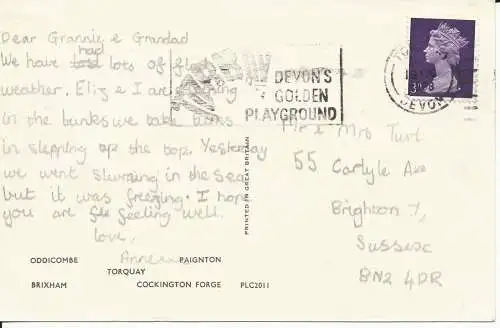 Dear Grannie & Grandad
We have had lots of fine
weather. Eliz & I are sleeping
in the bunks we take turns
in sleeping up the top. Yesterday
we went swimming in the sea
but it was freezing. I hope
you are feeling well.
love,
Anne
TORBAY
DEVON'S
GOLDEN
PLAYGROUND
DEVON
Mr & Mrs Turl
55 Carlyle Ave
Brighton 7,
Sussex
BN2 4DR
PRINTED IN GREAT BRITAIN
ODDICOMBE PAIGNTON
TORQUAY
BRIXHAM COCKINGTON FORGE PLC2011